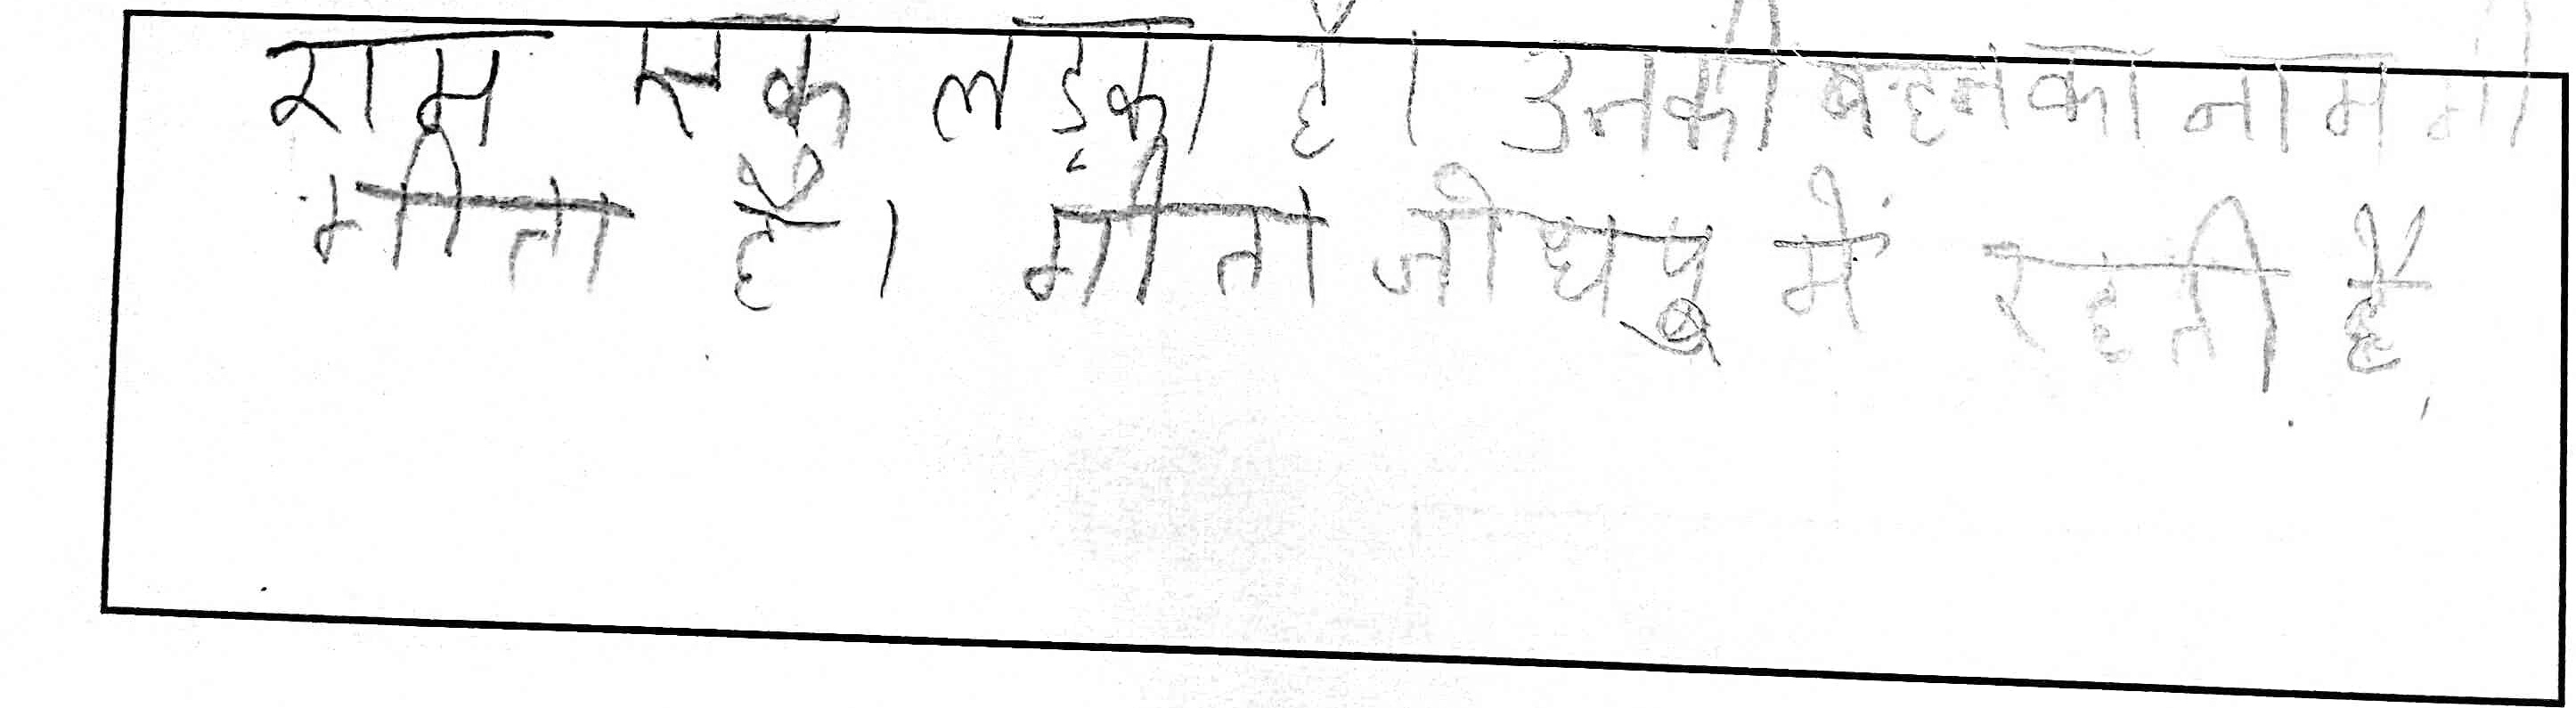 राम एक लड़का है। उनकी बहन का नाम गी
गीता है। गीता जोधपु में रहती है